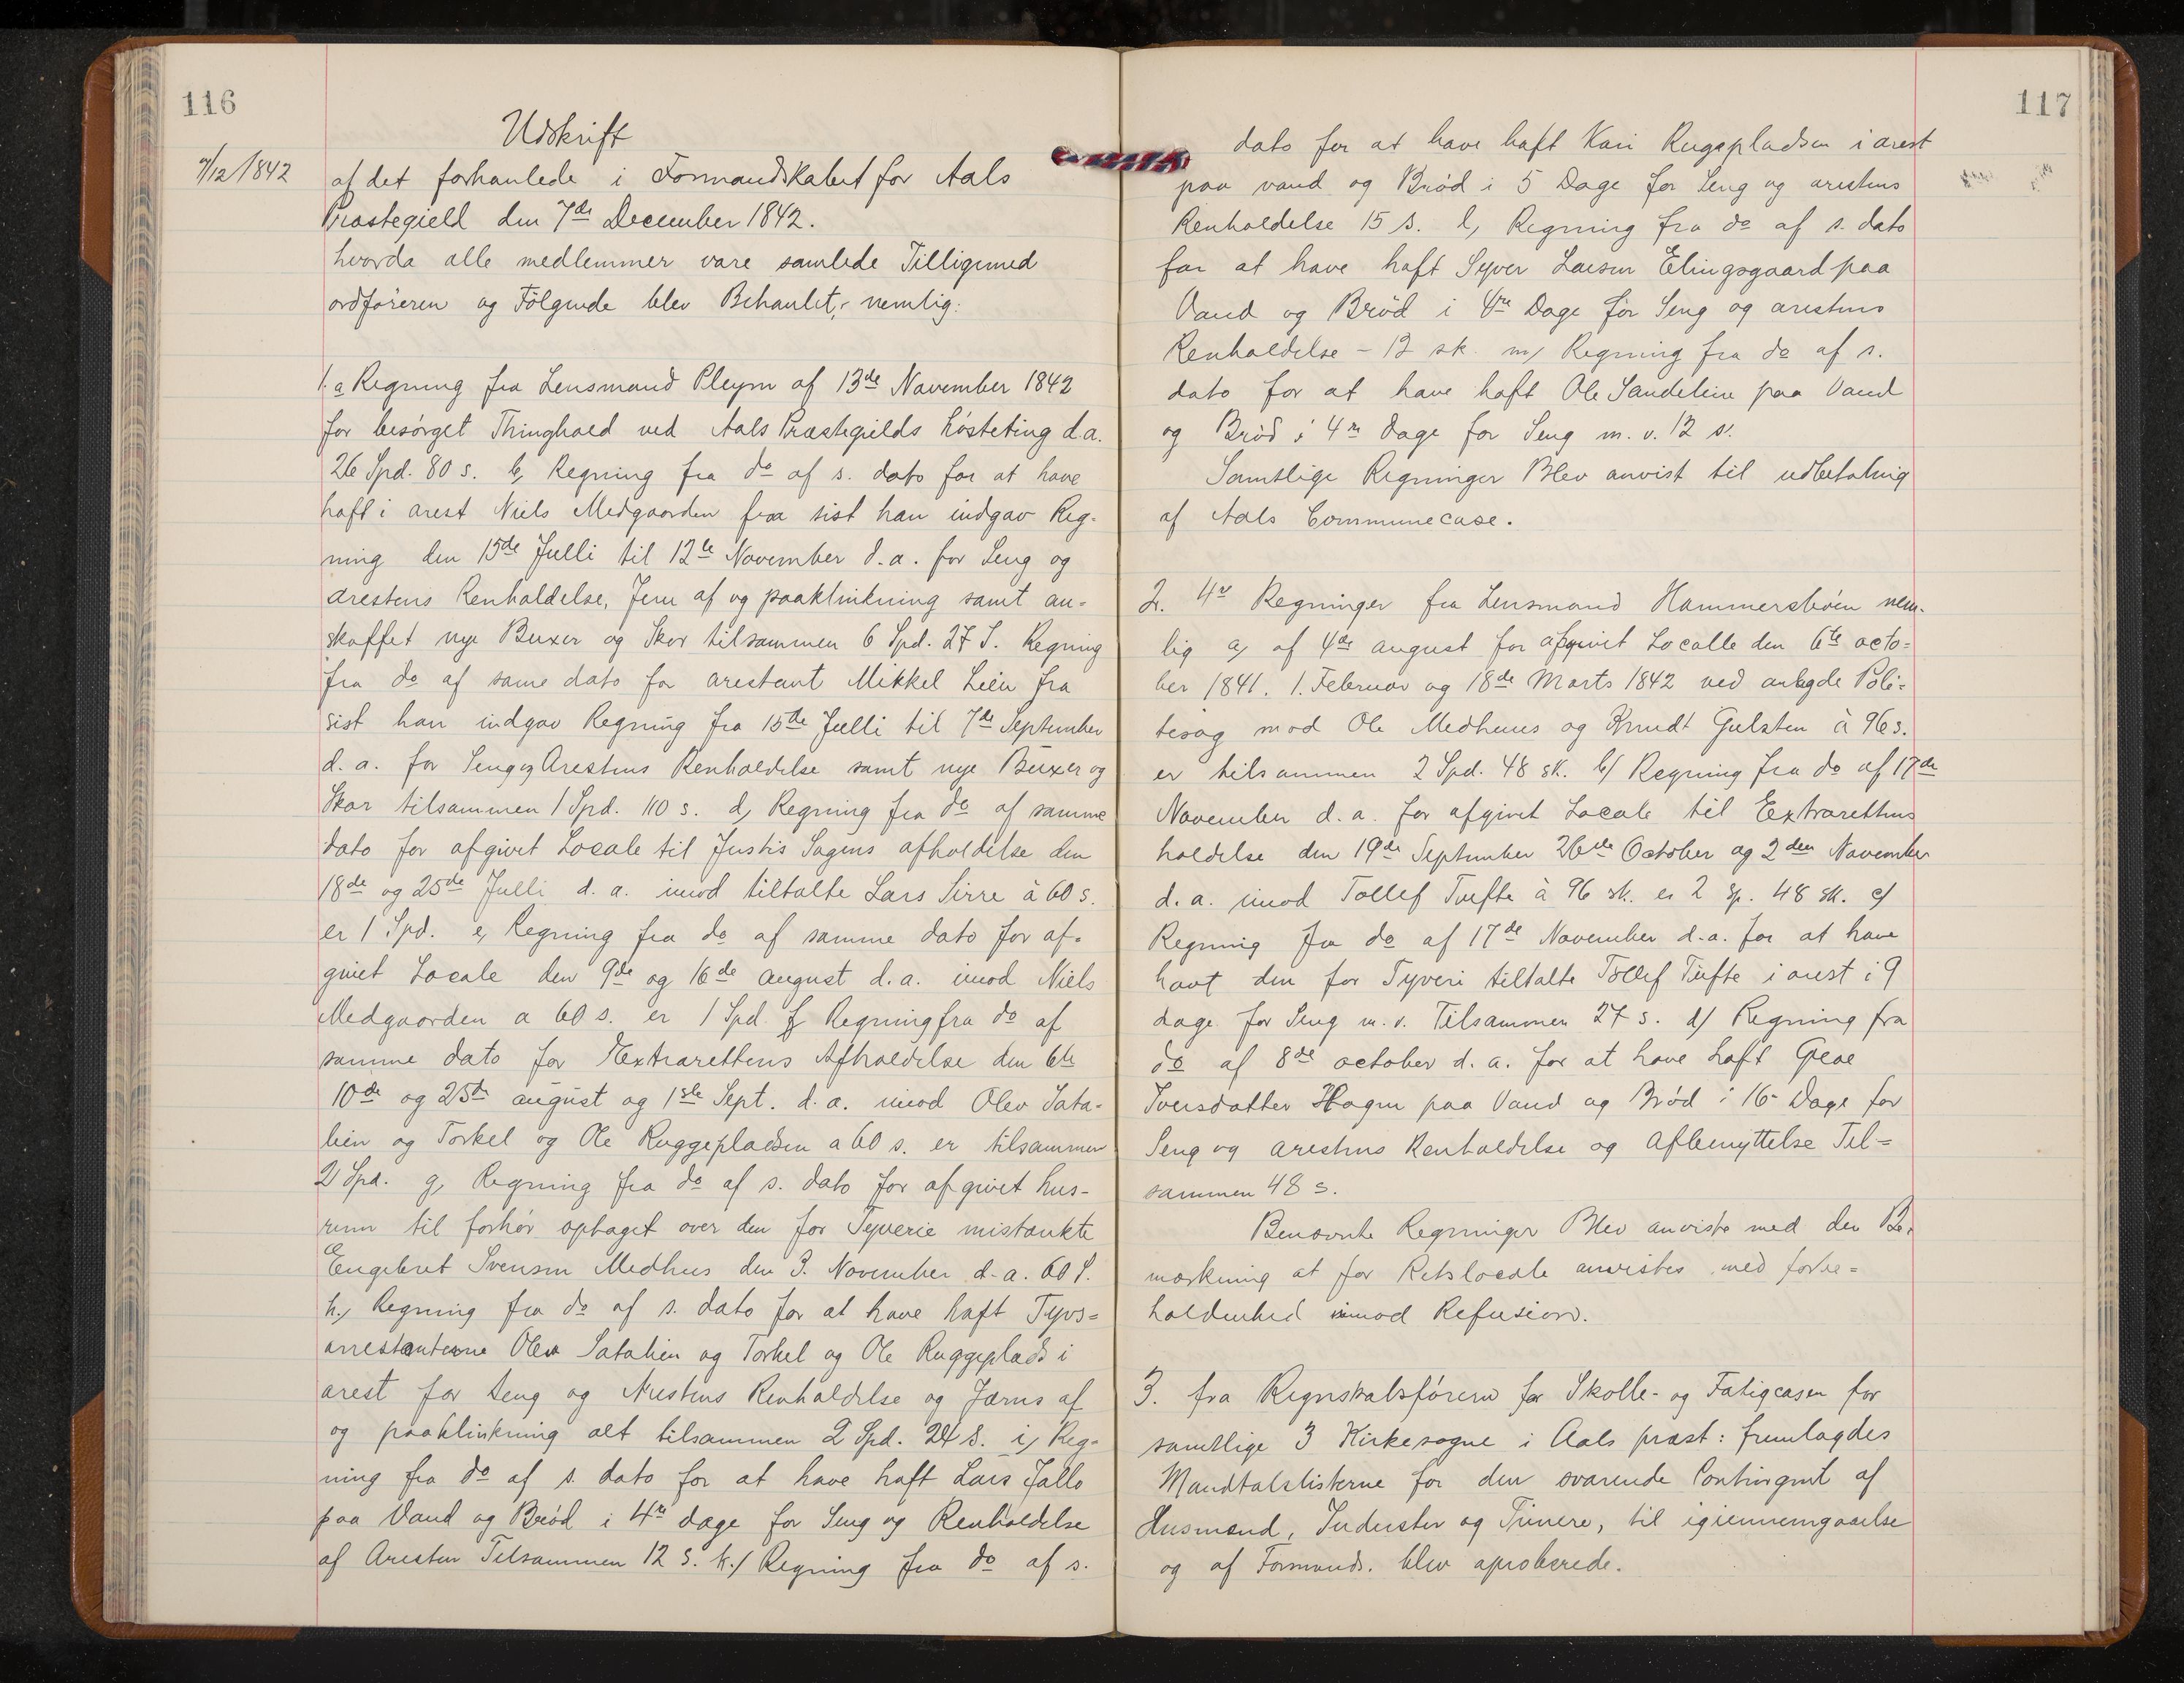 116
Udskrift
7/12/1842
af det forhanlede i Formandskabet for Aals
Præstegield den 7de December 1842.
hvorda alle medlemmer vare samlede Tilligemed
ordføreren og Følgende blev Behanlet, nemlig:
1. a Regning fra Lensmand Pleym af 13de November 1842
for besörget Thinghold ved Aals Præstegields Hösteting d.a.
26 Spd. 80 s. b, Regning fra do af s. dato for at have
haft i arest Niels Medgaarden fraa sist han indgav Reg-
ning den 15de Julli til 12te November d.a. for Seng og
arestens Renholdelse, Jern af og paaklinkning samt an-
skaffet nye Buxer og Skor tilsammen 6 Spd. 27 S. Regning
fra do af same dato for arestant Mikkel Leiu fra
sist han indgav Regning fra 15de Julli til 7de September
d.a. for Seng og Arestens Renholdelse samt nye Buxer og
Skor tilsammen 1 Spd. 110 s. d, Regning fra do af samme
dato for afgivet Locale til Justis Sagens afholdelse den
18de og 25de Julli d.a. imod tiltalte Lars Sirre à 60 s.
er 1 Spd. e, Regning fra do af samme dato for af-
givet Locale den 9de og 16de august d.a. imod Niels
Medgaarden a 60 s. er 1 Spd. f, Regning fra do af
samme dato for Extrarettens Afholdelse den 6te
10de og 25de august og 1ste Sept. d.a. imod Olev Sata-
lein og Torkel og Ole Ruggepladsen a 60 s. er tilsammen
2 Spd. g, Regning fra do af s. dato for afgivet hus-
rum til forhör optaget over den for Tyverie mistænkte
Engebret Svensen Medhus den 3. November d.a. 60 S.
h, Regning fra do af s. dato for at have haft Tyvs-
arrestanterne Olev Satalien og Torkel og Ole Ruggeplads i
arest for Seng og Arestens Renholdelse og Jærns af
og paaklinkning alt tilsammen 2 Spd. 24 s. i, Reg-
ning fra do af s. dato for at have haft Lars Jallo
paa Vand og Bröd i 4re dage for Seng og Renholdelse
af Aresten Tilsammen 12 S. k./ Regning fra do af s.
117
dato for at have haft Kari Rugepladsen i arest
paa vand og Bröd i 5 Dage for Seng og arestens
Renholdelse 15 s. l, Regning fra do af s. dato
for at have haft Syver Larsen Elingsgaard paa
Vand og Bröd i 4re Dage for Seng og arestens
Renholdelse - 12 sk. m/ Regning fra do af s.
dato for at have haft Ole Sandelein paa Vand
og Bröd i 4re dage for Seng m.v. 12 s.
Samtlige Regninger Blev anvist til udbetaling
af Aals Communecase.
2. 4re Regninger fra Lensmand Hammersböen nem-
lig a, af 4de august for afgivet Localle den 6te octo-
ber 1841. 1. Februar og 18de Marts 1842 ved anlagde Poli-
tisag mod Ole Medhuus og Knudt Gulsten à 96 s.
er tilsammen 2 Spd. 48 sk. b/ Regning fra do af 17de
November d.a. for afgivet Locale til Extrarettens
holdelse den 19de September 26de October og 2den November
d.a. imod Tollef Tufte à 96 sk. er 2 sp. 48 sk. c/
Regning fra do af 17de November d.a. for at have
havt den for Tyveri tiltalte Tollef Tufte i arest i 9
dage for Seng m.v. Tilsammen 27 s. d/ Regning fra
do af 8de october d.a. for at have haft Groe
Iversdatter Hagen paa Vand og Bröd i 16 Dage for
Seng og arestens Renholdelse og Afbenyttelse Til-
sammen 48 s.
Benævnte Regninger Blev anviste med den Be-
mærkning at for Retslocale anvistes med forbe-
holdenhed imod Refusion.
3. fra Regnskabsföreren for Skolle- og Fatigcasen for
samtlige 3 Kirkesogne i Aals præst: fremlagdes
Mandtalslisterne for den svarende Contingent af
Husmend, Inderster og Tienere, til igiennemgaaelse
og af Formands. blev aproberede.